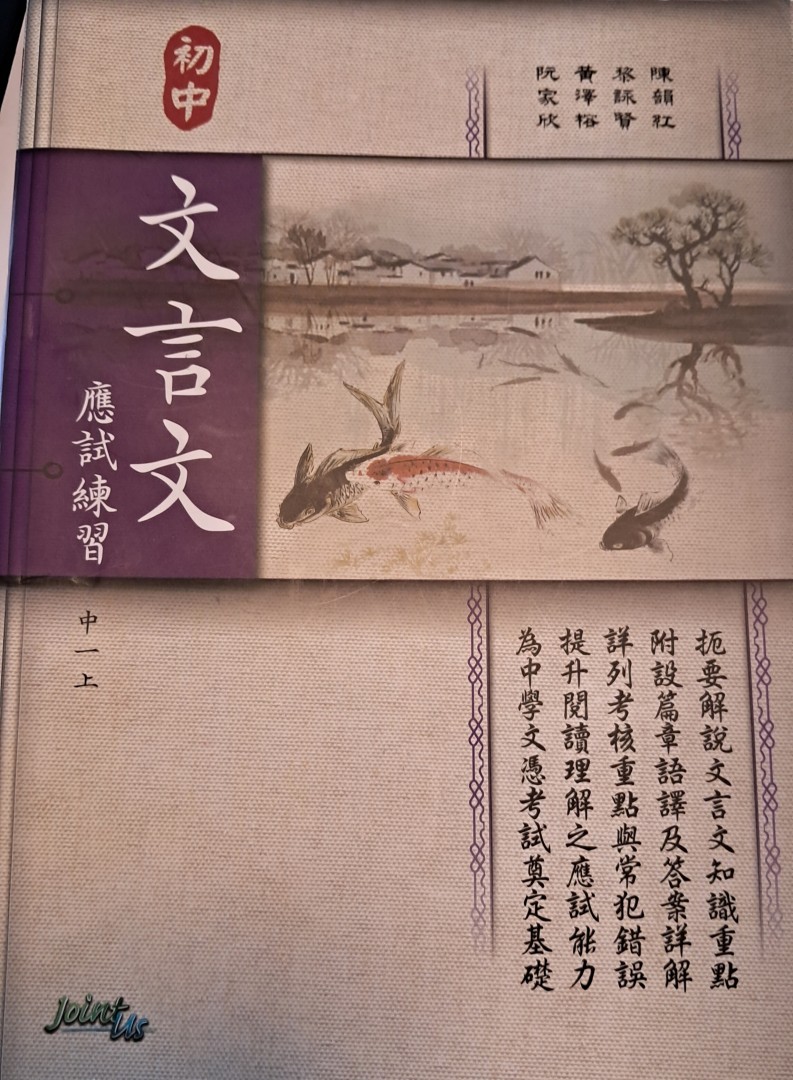 初中
陳韻紅
黎詠賢
黃澤榕
阮家欣
文言文
應試練習
中一上
扼要解說文言文知識重點
附設篇章語譯及答案詳解
詳列考核重點與常犯錯誤
提升閱讀理解之應試能力
為中學文憑考試奠定基礎
Joint Us